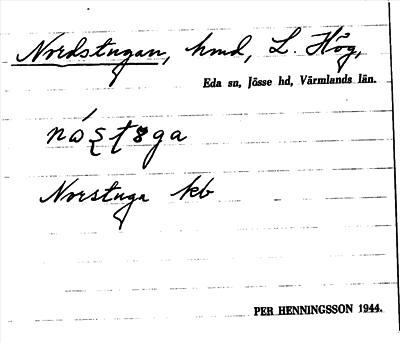 Nordstugan, hmd, L. Hög,
Eda sn, Jösse hd, Värmlands län.
Norstuga kb
PER HENNINGSSON 1944.